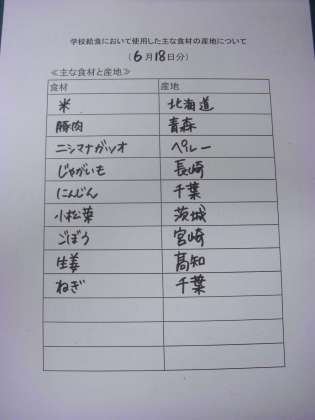 学校給食において使用した主な食材の産地について
(6月18日分)
≪主な食材と産地≫
食材 産地
米 北海道
豚肉 青森
ニシマナガツオ ペルー
じゃがいも 長崎
にんじん 千葉
小松菜 茨城
ごぼう 宮崎
生姜 高知
ねぎ 千葉